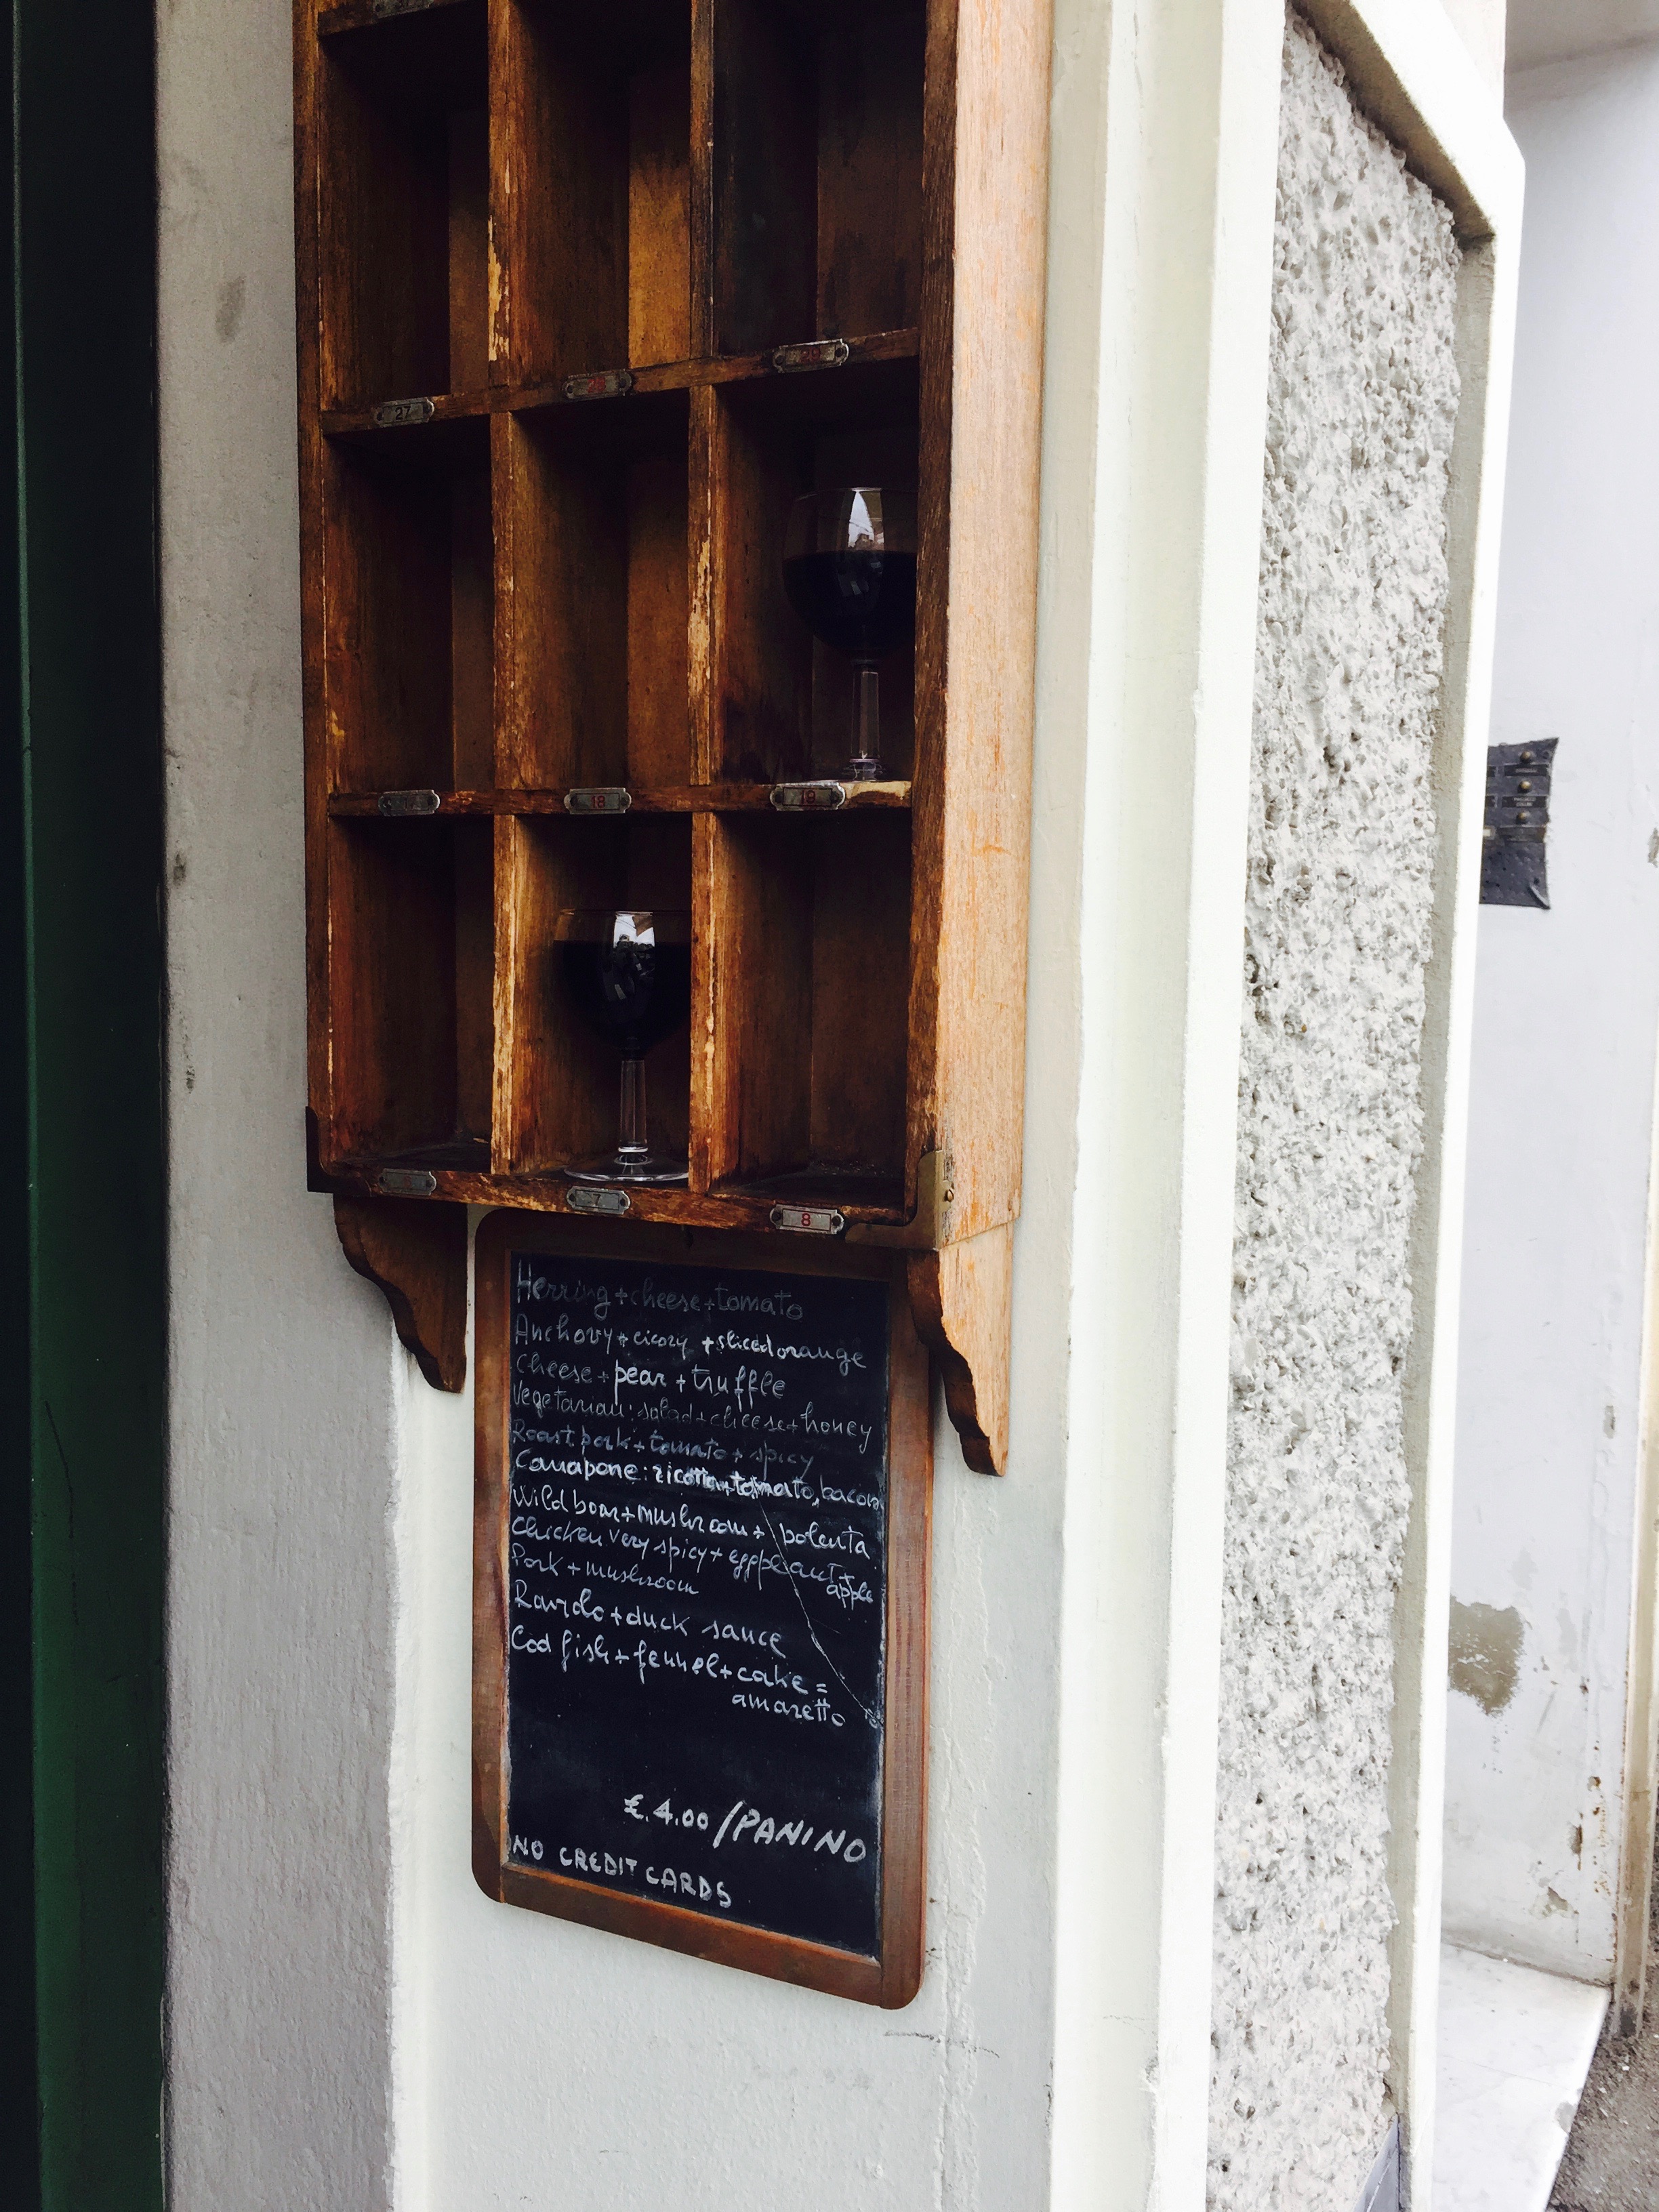 27
28
29
18
19
7
8
Herring + cheese + tomato
Anchovy + cicory + sliced orange
Cheese + pear + truffle
Vegetarian: salad + cheese + honey
Roast pork + tomato + spicy
Canapone: ricotta + tomato, bacon
Wild boar + mushroom + polenta
Chicken very spicy + eggpeant +
apple
Pork + mushroom
+ duck sauce
Cod fish + fennel + cake =
amaretto
€.4.00 / PANINO
NO CREDIT CARDS